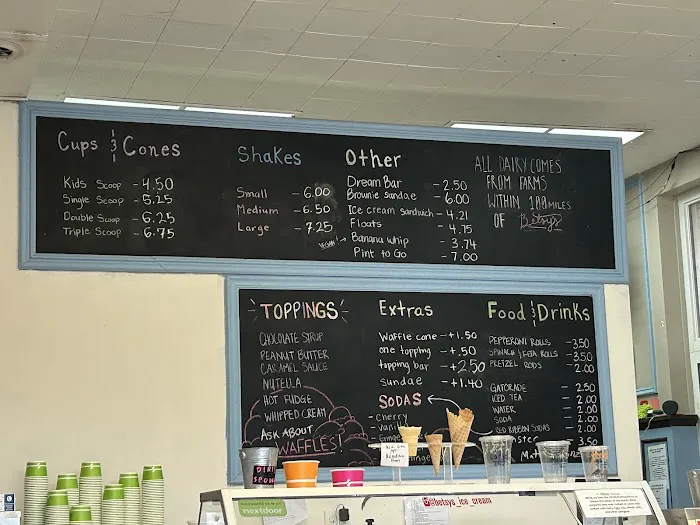 Cups & Cones
Kids Scoop - 4.50
Single Scoop - 5.25
Double Scoop - 6.25
Triple Scoop - 6.75
Shakes
Small - 6.00
Medium - 6.50
Large - 7.25
Other
Dream Bar - 2.50
Brownie Sundae - 6.00
Ice cream sandwich - 4.21
Floats - 4.75
VEGAN! → Banana whip - 3.74
Pint to Go - 7.00
ALL DAIRY COMES
FROM FARMS
WITHIN 100 MILES
OF Betsy's
TOPPINGS
CHOCOLATE SYRUP
PEANUT BUTTER
CARAMEL SAUCE
NUTELLA
HOT FUDGE
WHIPPED CREAM
ASK ABOUT
WAFFLES!
Extras
Waffle cone - +1.50
one topping - +.50
topping bar - +2.50
sundae - +1.40
SODAS
- Cherry
- Vanil
- Ginge
Food & Drinks
PEPPERONI ROLLS - 3.50
SPINACH & FETA ROLLS - 3.50
PRETZEL RODS - 2.00
GATORADE - 2.50
ICED TEA - 2.00
WATER - 2.00
SODA - 2.00
RED RIBBON SODAS - 2.00
ster - 3.50
DIRTY
SPOONS
nextdoor
@betsys_ice_cream